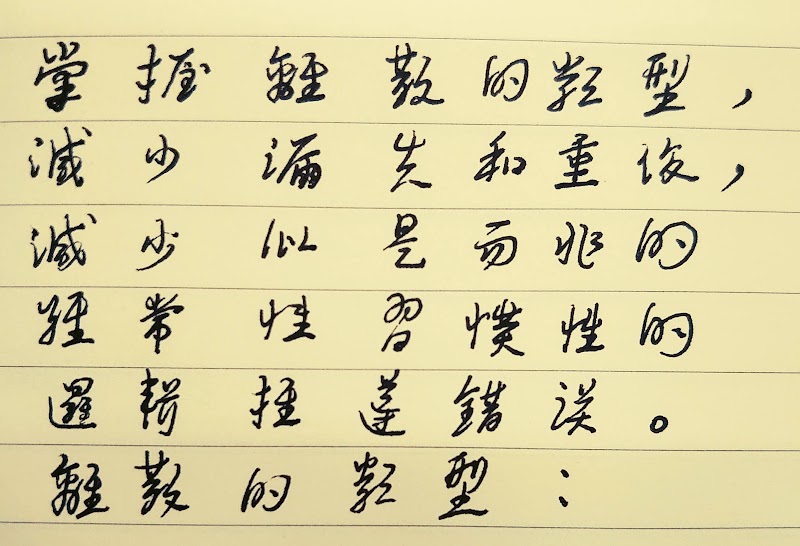 掌握離散的類型，
減少漏失和重複，
減少似是而非的
經常性習慣性的
邏輯推運錯誤。
離散的類型：